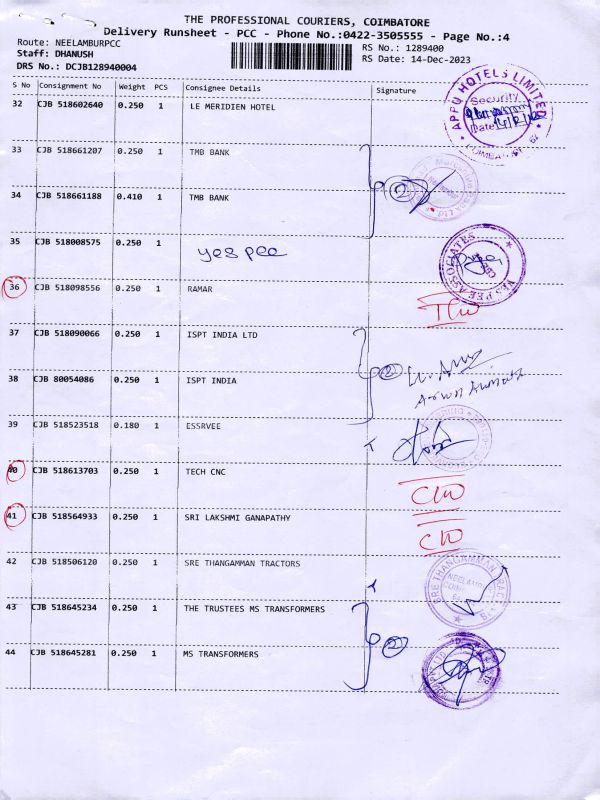 THE PROFESSIONAL COURIERS, COIMBATORE
Delivery Runsheet - PCC - Phone No.:0422-3505555 - Page No.:4
Route: NEELAMBURPCC
RS No.: 1289400
Staff: DHANUSH
RS Date: 14-Dec-2023
DRS No.: DCJB128940004
S No Consignment No Weight PCS Consignee Details Signature
32 CJB 518602640 0.250 1 LE MERIDIEN HOTEL
APPU HOTELS LIMITED
Security
Date
33 CJB 518661207 0.250 1 TMB BANK
2
34 CJB 518661188 0.410 1 TMB BANK
35 CJB 518008575 0.250 1 yes pee
YES PEE ASSOCIATES
36 CJB 518098556 0.250 1 RAMAR
37 CJB 518090066 0.250 1 ISPT INDIA LTD
2
38 CJB 80054086 0.250 1 ISPT INDIA
39 CJB 518523518 0.180 1 ESSRVEE
40 CJB 518613703 0.250 1 TECH CNC
41 CJB 518564933 0.250 1 SRI LAKSHMI GANAPATHY
42 CJB 518506120 0.250 1 SRE THANGAMMAN TRACTORS
SRE THANGAMMAN TRACTORS
43 CJB 518645234 0.250 1 THE TRUSTEES MS TRANSFORMERS
2
44 CJB 518645281 0.250 1 MS TRANSFORMERS